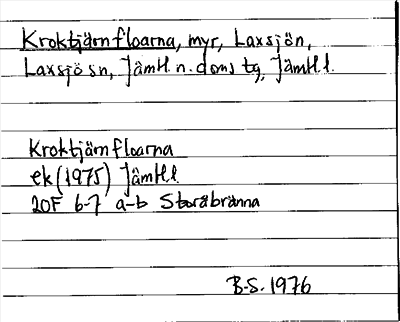 Kroktjärnfloarna, myr, Laxsjön,
Laxsjö sn, Jämtl. n. doms tg, Jämtl l.
Kroktjärnfloarna
ek (1975) Jämtl l.
20F 6-7 a-b Storåbränna
B-S. 1976